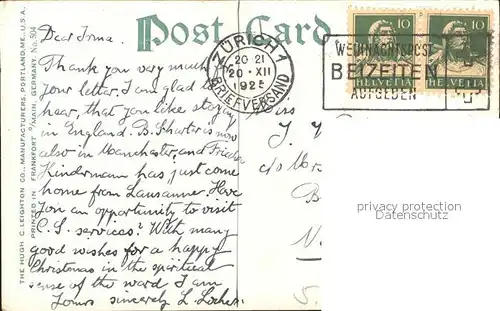 THE HUGH C. LEIGHTON CO., MANUFACTURERS, PORTLAND, ME., U.S.A.
PRINTED IN FRANKFORT o/MAIN, GERMANY. No. 504
Post Card
Dear Irma.
Thank you very much for
your letter. I am glad to
hear, that you like staying
in England. B. is now
also in Manchester, and
Kindermann has just come
home from Lausanne. Have
You an opportunity to visit
C.S. services? With many
good wishes for a happy
Christmas in the spiritual
sense of the word I am
Yours sincerely L.
ZÜRICH 1
20 21
20.XII
1925
BRIEFVERSAND
10 10
HELVETIA HELVETIA
WEIHNACHTSPOST
BEIZEITEN
AUFGEBEN
iss
J. Y
c/o Mr
B
N.
S.
privacy protection
Datenschutz